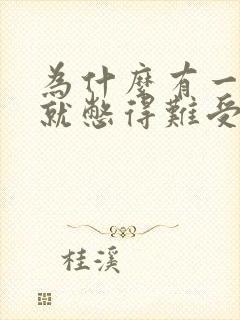 為什麼有一
就憋得難受
桂溪